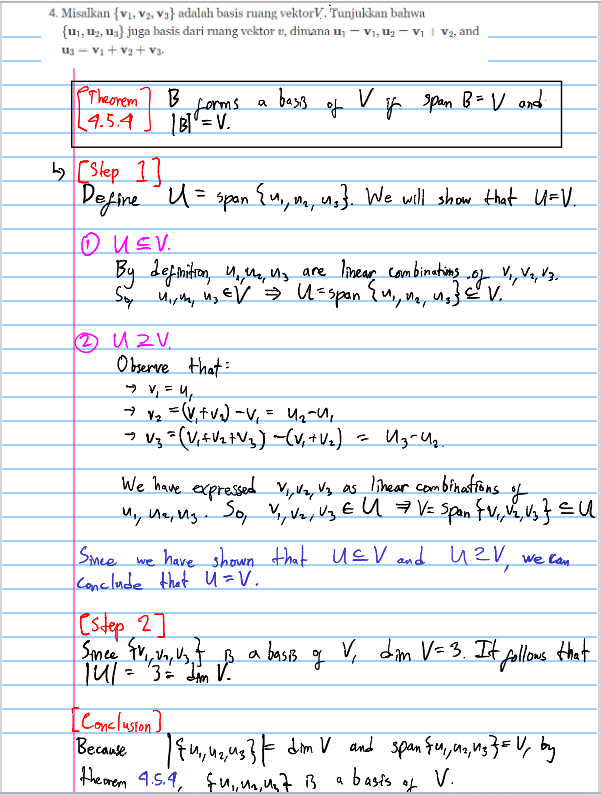 4. Misalkan {v₁, v₂, v₃} adalah basis ruang vektorV. Tunjukkan bahwa
{u₁, u₂, u₃} juga basis dari ruang vektor v, dimana u₁ − v₁, u₂ − v₁ + v₂, and
u₃ − v₁ + v₂ + v₃.
[Theorem 4.5.4] B forms a basis of V if span B = V and
|B| = V.
↳ [Step 1]
Define U = span {u₁, u₂, u₃}. We will show that U=V.
① U ⊆ V.
By definition, u₁, u₂, u₃ are linear combinations of v₁, v₂, v₃.
So, u₁, u₂, u₃ ∈ V ⇒ U = span {u₁, u₂, u₃} ⊆ V.
② U ⊇ V.
Observe that:
→ v₁ = u₁
→ v₂ = (v₁+v₂) − v₁ = u₂−u₁
→ v₃ = (v₁+v₂+v₃) − (v₁+v₂) = u₃−u₂.
We have expressed v₁, v₂, v₃ as linear combinations of
u₁, u₂, u₃. So, v₁, v₂, v₃ ∈ U ⇒ V= span {v₁, v₂, v₃} ⊆ U
Since we have shown that U ⊆ V and U ⊇ V, we can
conclude that U = V.
[Step 2]
Since {v₁, v₂, v₃} is a basis of V, dim V= 3. It follows that
|U| = 3 = dim V.
[Conclusion]
Because |{u₁, u₂, u₃}| = dim V and span {u₁, u₂, u₃} = V, by
theorem 4.5.4, {u₁, u₂, u₃} is a basis of V.